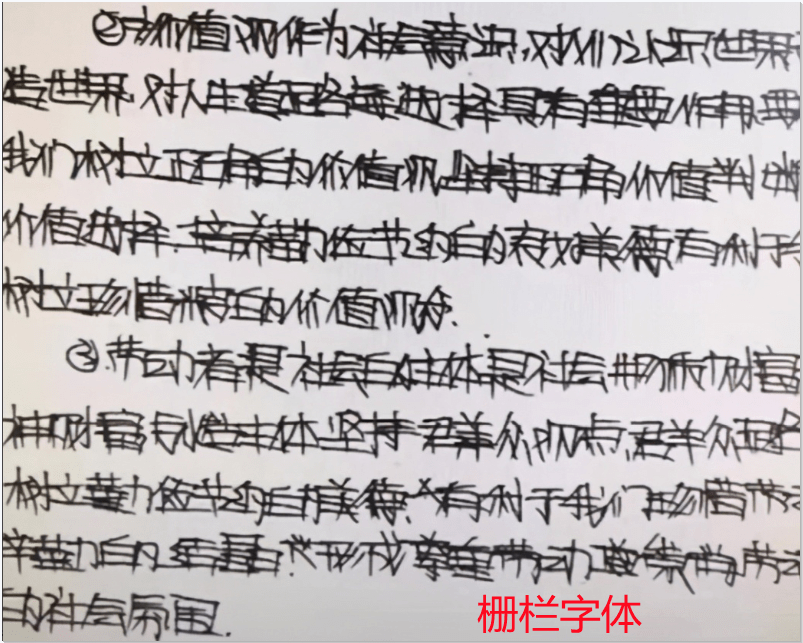 ②价值观作为社会意识,对人们认识世界
造世界,对人生道路的选择具有重要作用,要
我们树立正确的价值观,坚持正确价值判断
价值选择.培养勤俭节约的良好美德,有利于
树立珍惜粮食的价值观.
③.劳动者是社会的主体,是社会物质财富
神财富创造主体,坚持群众观点,群众路
树立勤力俭节约的美德.有利于我们珍惜劳
辛勤的结晶,形成尊重劳动,崇尚劳动
的社会氛围.
栅栏字体